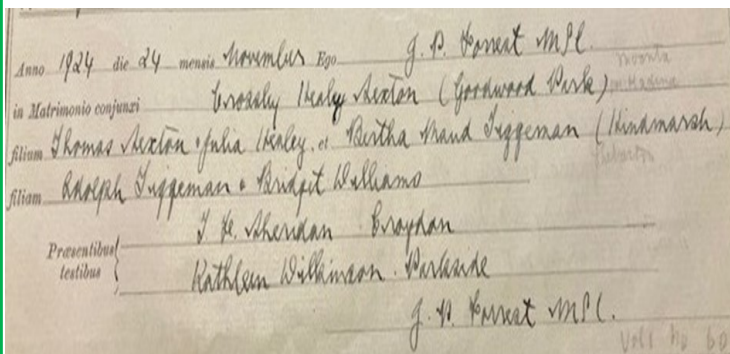 Anno 1924 die 24 mensis November Ego J. P. Forrest MSC.
in Matrimonio conjunxi Crossley Healy Sexton (Goodwood Park)
filium Thomas Sexton & Julia Healey, et Bertha Maud Tiggeman (Hindmarsh)
filiam Adolph Tiggeman & Bridget Williams
Præsentibus testibus
J. H. Sheridan Croydon
Kathleen Wilkinson. Parkside
J. P. Forrest MSC.